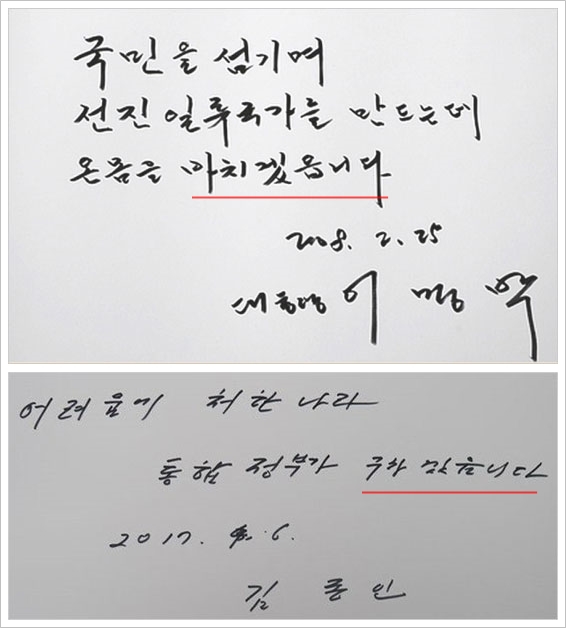 국민을 섬기며
선진일류국가를 만드는데
온몸을 바치겠읍니다
2008. 2. 25
대통령 이명박
어려움에 처한 나라
통합 정부가 구하겠읍니다
2017. 4. 6.
김종인